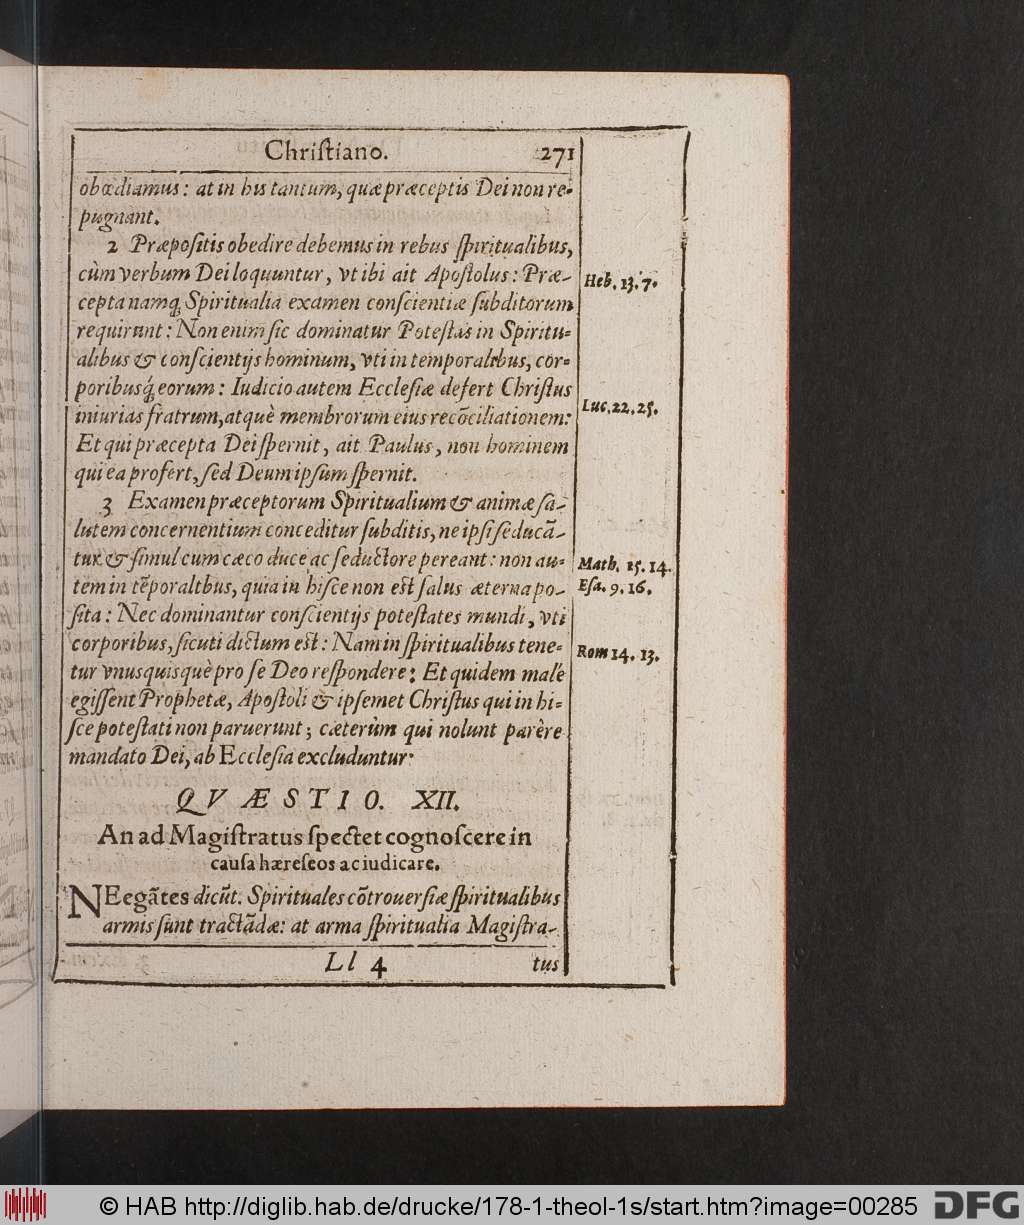 Chriſtiano. 271
obœdiamus: at in his tantum, quæ præceptis Dei non re-
pugnant.
2 Præpoſitis obedire debemus in rebus ſpiritualibus,
cùm verbum Dei loquuntur, vt ibi ait Apoſtolus: Præ-
Heb. 13. 7.
cepta namq́ Spiritualia examen conſcientiæ ſubditorum
requirunt: Non enim ſic dominatur Poteſtas in Spiritu-
alibus & conſcientijs hominum, vti in temporalibus, cor-
poribusq́ eorum: Iudicio autem Eccleſiæ defert Chriſtus
Luc. 22. 25.
iniurias fratrum, atquè membrorum eius recõciliationem:
Et qui præcepta Dei ſpernit, ait Paulus, non hominem
qui ea profert, ſed Deum ipſum ſpernit.
3 Examen præceptorum Spiritualium & animæ ſa-
lutem concernentium conceditur ſubditis, ne ipſi ſeducã-
tur & ſimul cum cæco duce ac ſeductore pereant: non au-
Math. 15. 14.
tem in tẽporalibus, quia in hiſce non eſt ſalus æterna po-
Eſa. 9. 16.
ſita: Nec dominantur conſcientijs poteſtates mundi, vti
corporibus, ſicuti dictum eſt: Nam in ſpiritualibus tene-
Rom 14. 13.
tur vnusquisquè pro ſe Deo reſpondere: Et quidem malè
egiſſent Prophetæ, Apoſtoli & ipſemet Chriſtus qui in hi-
ſce poteſtati non paruerunt; cæterùm qui nolunt parère
mandato Dei, ab Eccleſia excluduntur.
QVÆSTIO. XII.
An ad Magiſtratus ſpectet cognoſcere in
cauſa hæreſeos ac iudicare.
NEegãtes dicũt. Spirituales cõtrouerſiæ ſpiritualibus
armis ſunt tractãdæ: at arma ſpiritualia Magiſtra-
Ll 4 tus
© HAB http://diglib.hab.de/drucke/178-1-theol-1s/start.htm?image=00285
DFG